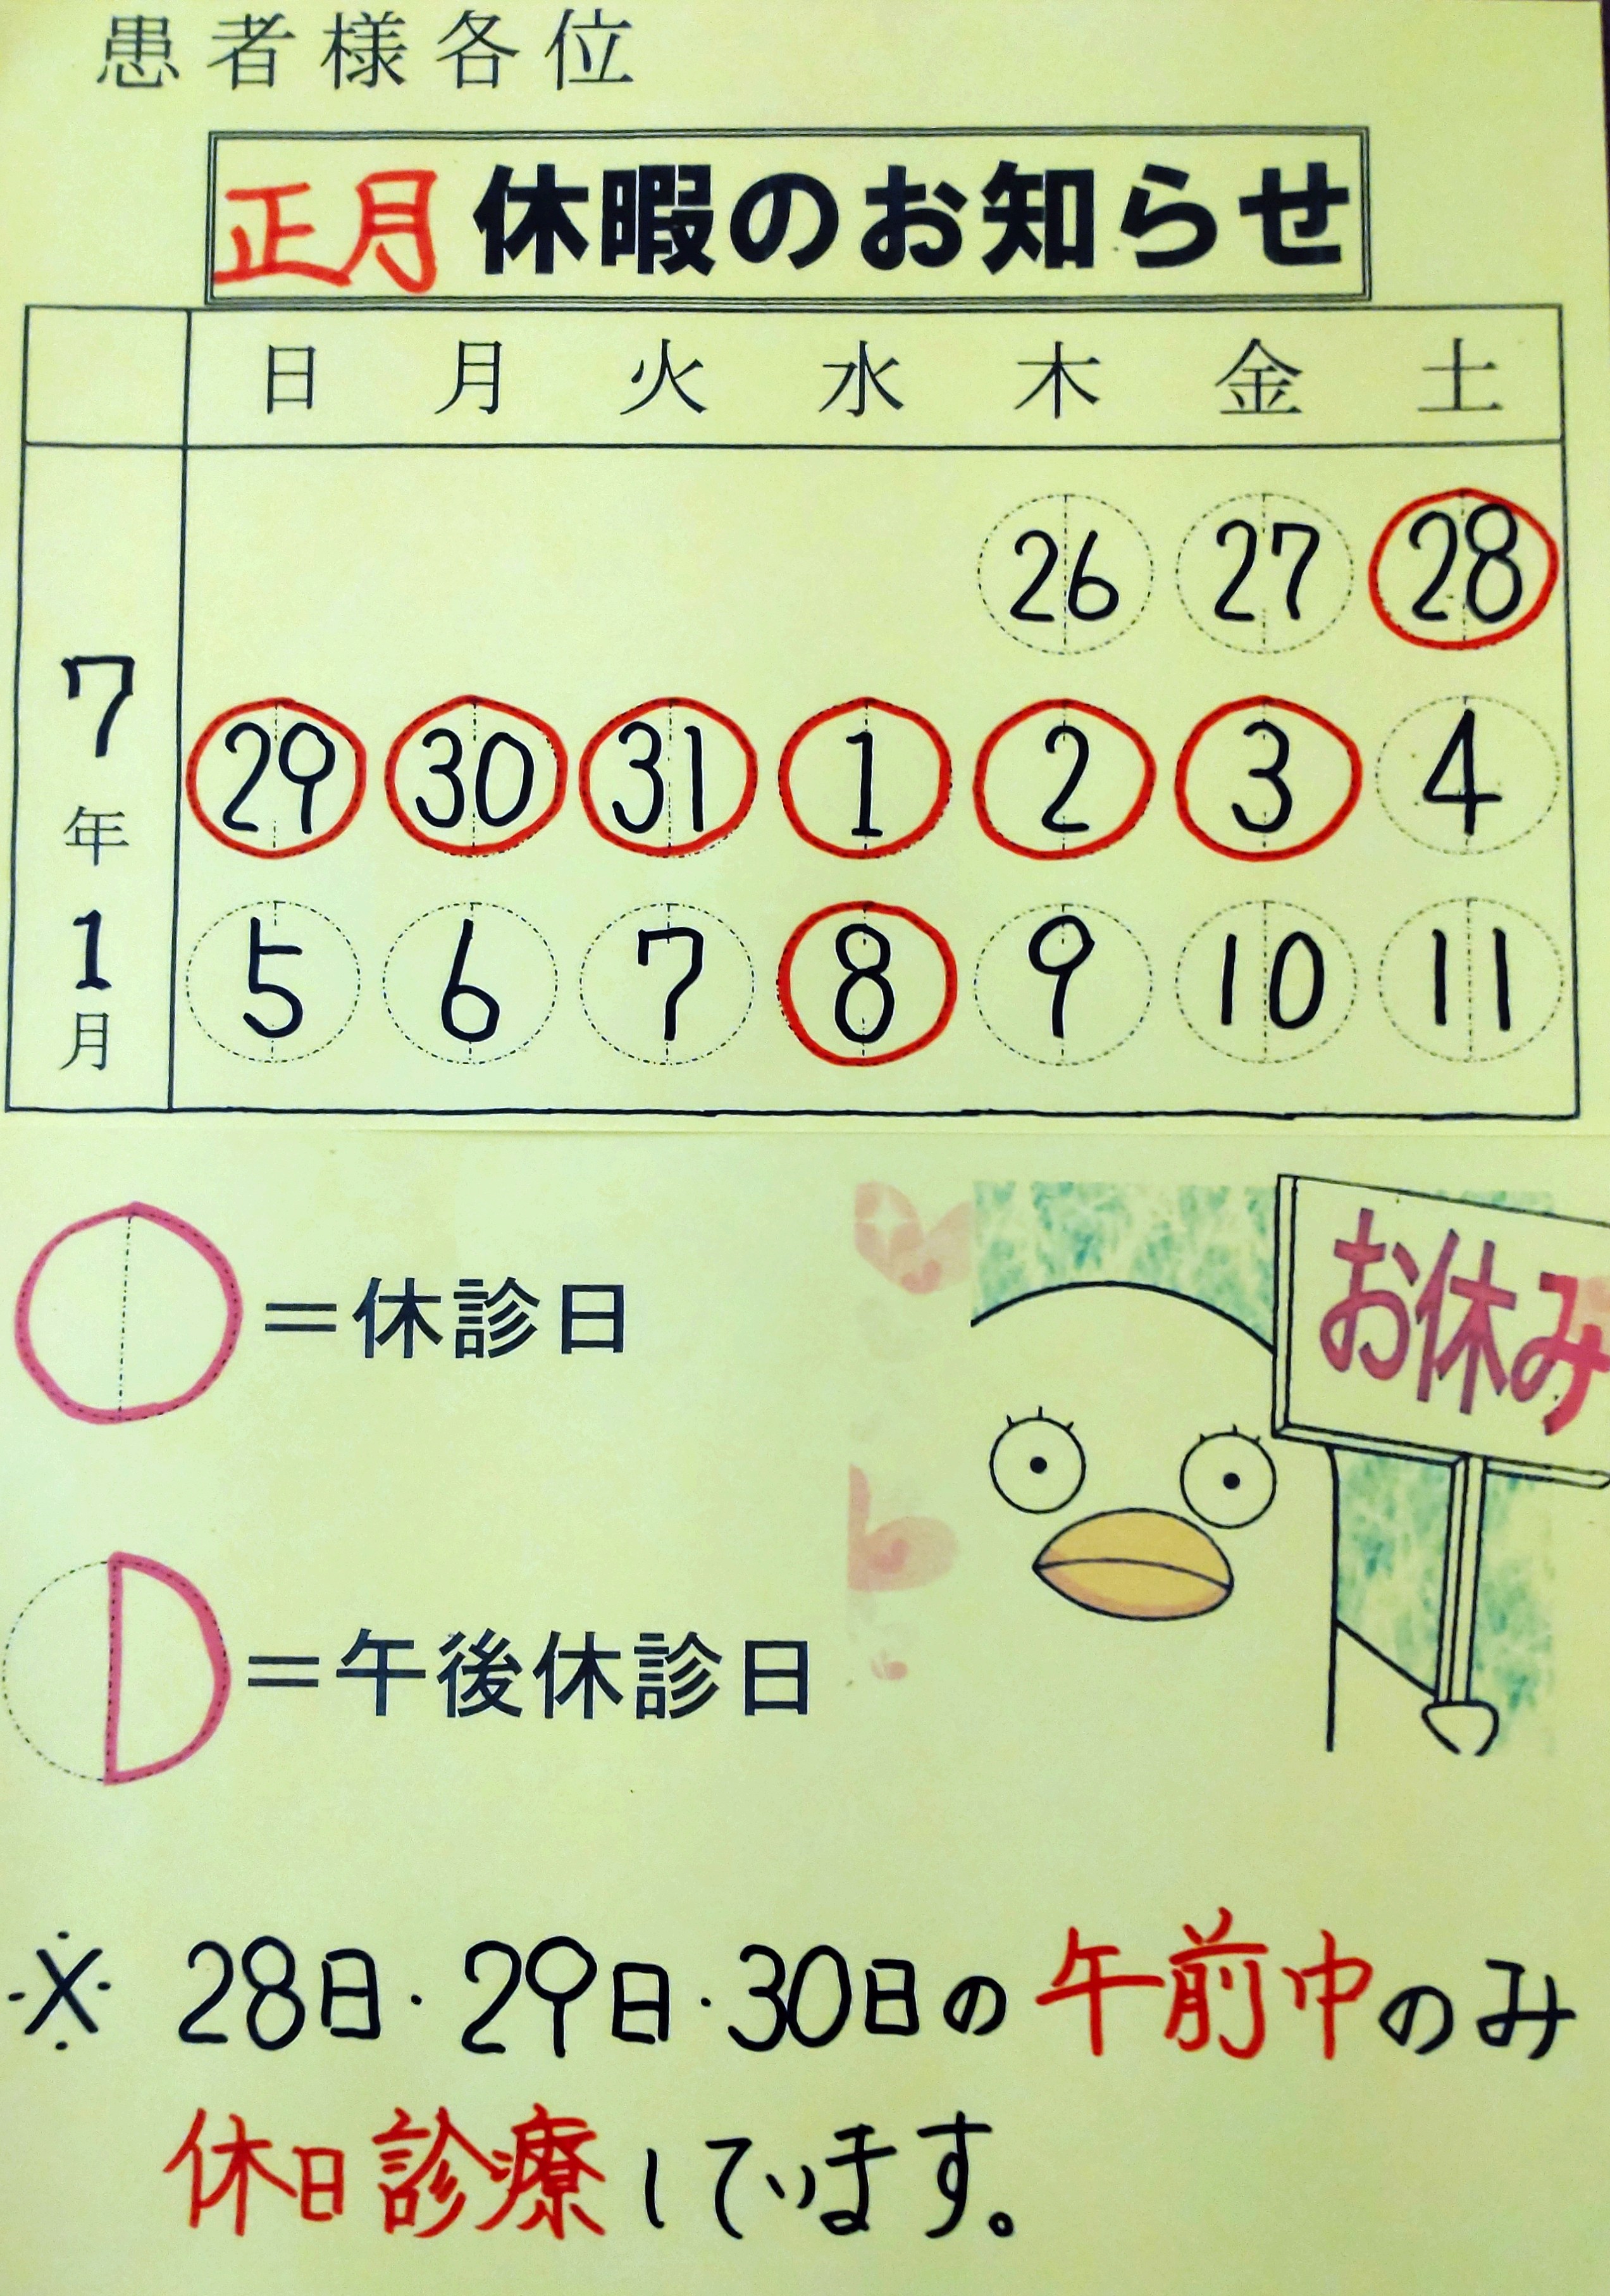 患者様各位
正月休暇のお知らせ
日 月 火 水 木 金 土
26 27 28
29 30 31 1 2 3 4
5 6 7 8 9 10 11
7年1月
=休診日
お休み
=午後休診日
※ 28日・29日・30日の午前中のみ
休日診療しています。